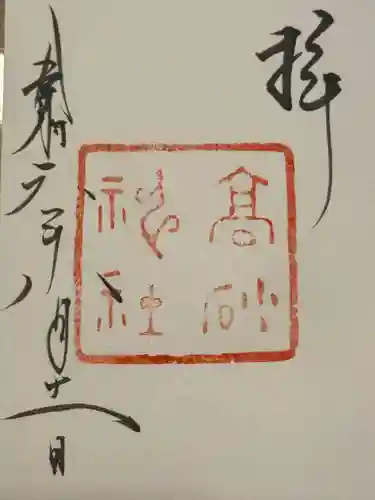 拝
高砂
神社
元年八月十一日